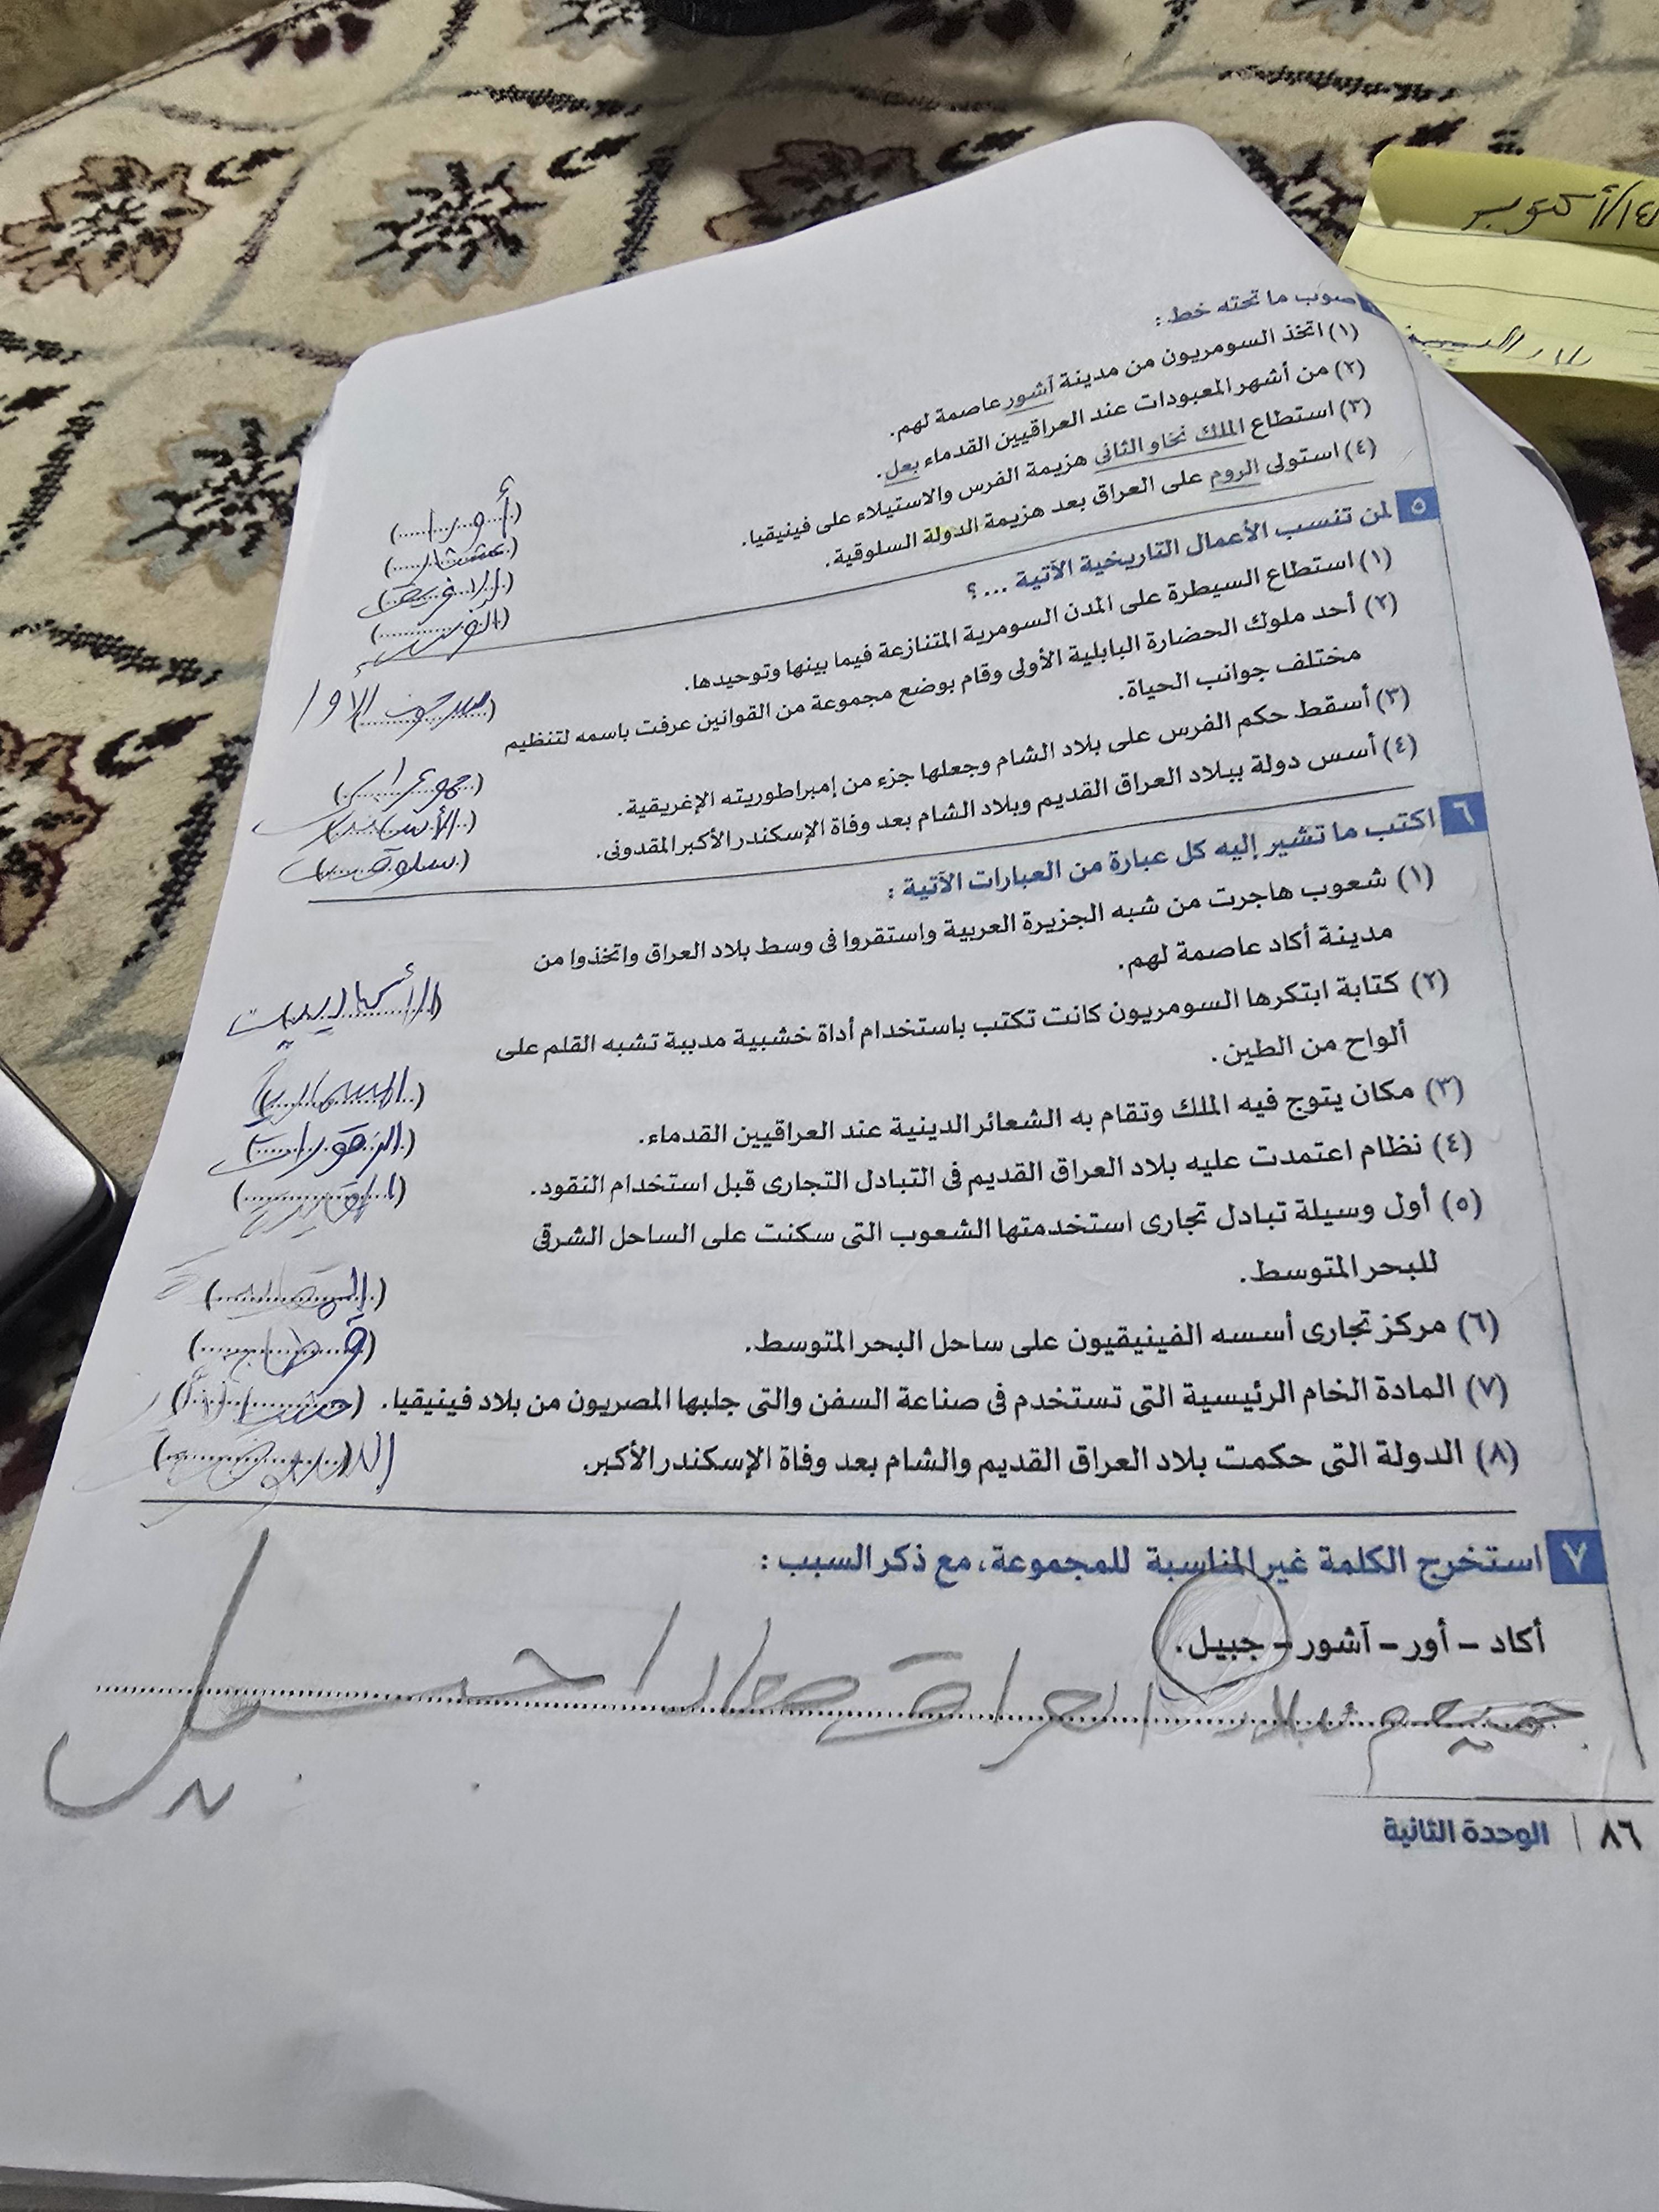 ١٤/أكتوبر
صوب ما تحته خط :
(١) اتخذ السومريون من مدينة آشور عاصمة لهم. (أور)
(٢) من أشهر المعبودات عند العراقيين القدماء بعل. (عشتار)
(٣) استطاع الملك نخاو الثانى هزيمة الفرس والاستيلاء على فينيقيا.
(٤) استولى الروم على العراق بعد هزيمة الدولة السلوقية. (الفرس)
٥ لمن تنسب الأعمال التاريخية الآتية ...؟
(١) استطاع السيطرة على المدن السومرية المتنازعة فيما بينها وتوحيدها. (سرجون الأول)
(٢) أحد ملوك الحضارة البابلية الأولى وقام بوضع مجموعة من القوانين عرفت باسمه لتنظيم
مختلف جوانب الحياة. (حمورابى)
(٣) أسقط حكم الفرس على بلاد الشام وجعلها جزء من إمبراطوريته الإغريقية. (الأسكندر)
(٤) أسس دولة ببلاد العراق القديم وبلاد الشام بعد وفاة الإسكندر الأكبر المقدونى. (سلوقس)
٦ اكتب ما تشير إليه كل عبارة من العبارات الآتية :
(١) شعوب هاجرت من شبه الجزيرة العربية واستقروا فى وسط بلاد العراق واتخذوا من
مدينة أكاد عاصمة لهم. (الأكاديين)
(٢) كتابة ابتكرها السومريون كانت تكتب باستخدام أداة خشبية مدببة تشبه القلم على
ألواح من الطين.
(٣) مكان يتوج فيه الملك وتقام به الشعائر الدينية عند العراقيين القدماء. (الزقورات)
(٤) نظام اعتمدت عليه بلاد العراق القديم فى التبادل التجارى قبل استخدام النقود.
(٥) أول وسيلة تبادل تجارى استخدمتها الشعوب التى سكنت على الساحل الشرقى
للبحر المتوسط.
(٦) مركز تجارى أسسه الفينيقيون على ساحل البحر المتوسط. (قرطاج)
(٧) المادة الخام الرئيسية التى تستخدم فى صناعة السفن والتى جلبها المصريون من بلاد فينيقيا. (خشب الأرز)
(٨) الدولة التى حكمت بلاد العراق القديم والشام بعد وفاة الإسكندر الأكبر.
٧ استخرج الكلمة غير المناسبة للمجموعة، مع ذكر السبب :
أكاد – أور – آشور – جبيل.
جميعهم بلاد العراق معادا جبيل
٨٦ | الوحدة الثانية